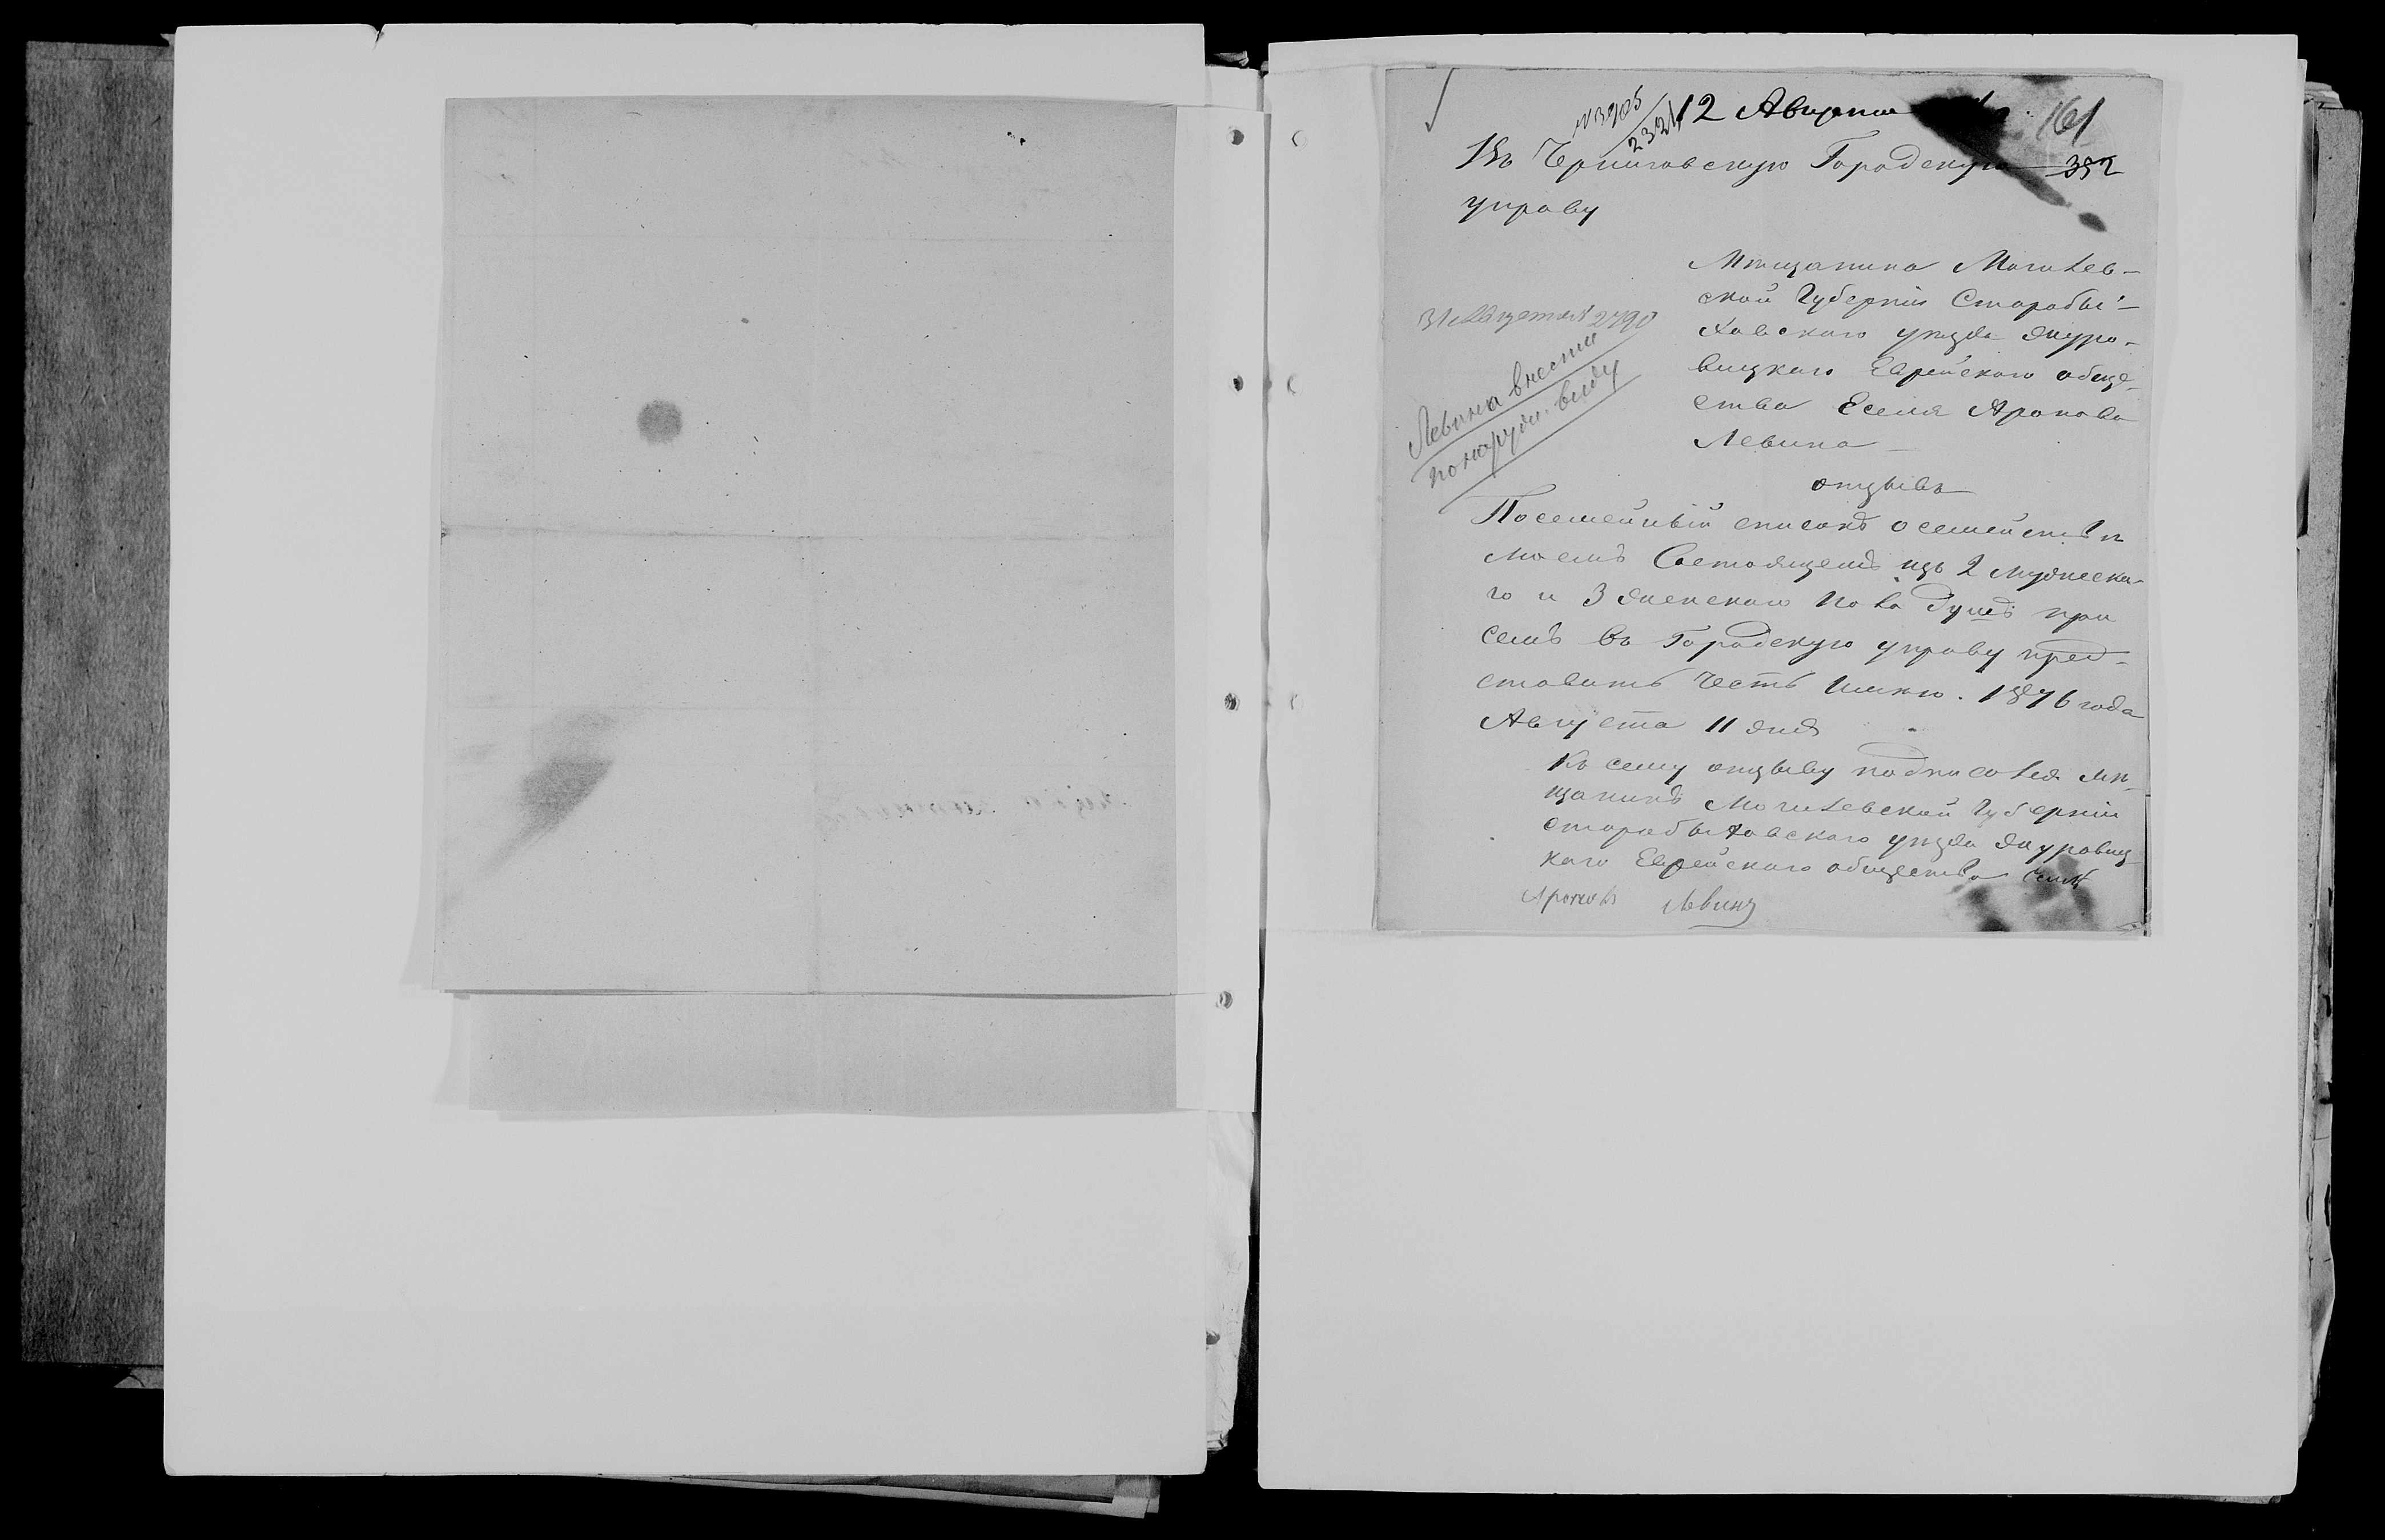 № 3905
2321
12 Августа
161
Въ Черниговскую Городскую
352
управу
Мѣщанина Могилев-
ской Губерніи Старобы-
ховскаго уѣзда Журо-
вицкаго Еврейского обще-
ства Еселя Аронова
Левина
отзывъ
31 Августа № 2790
Левина внести
по наружн. виду
Посемейный списокъ о семействѣ
моемъ Состоящемъ изъ 2 мужеска-
го и 3 женскаго пола душъ при
семъ въ Городскую управу пред-
ставить Честь Имѣю. 1876 года
Августа 11 дня
Къ сему отзыву подписался мѣ-
щанинъ Могилевской Губерніи
старобыховскаго уѣзда Журовиц
каго Еврейскаго общества
Ароновъ Левинъ